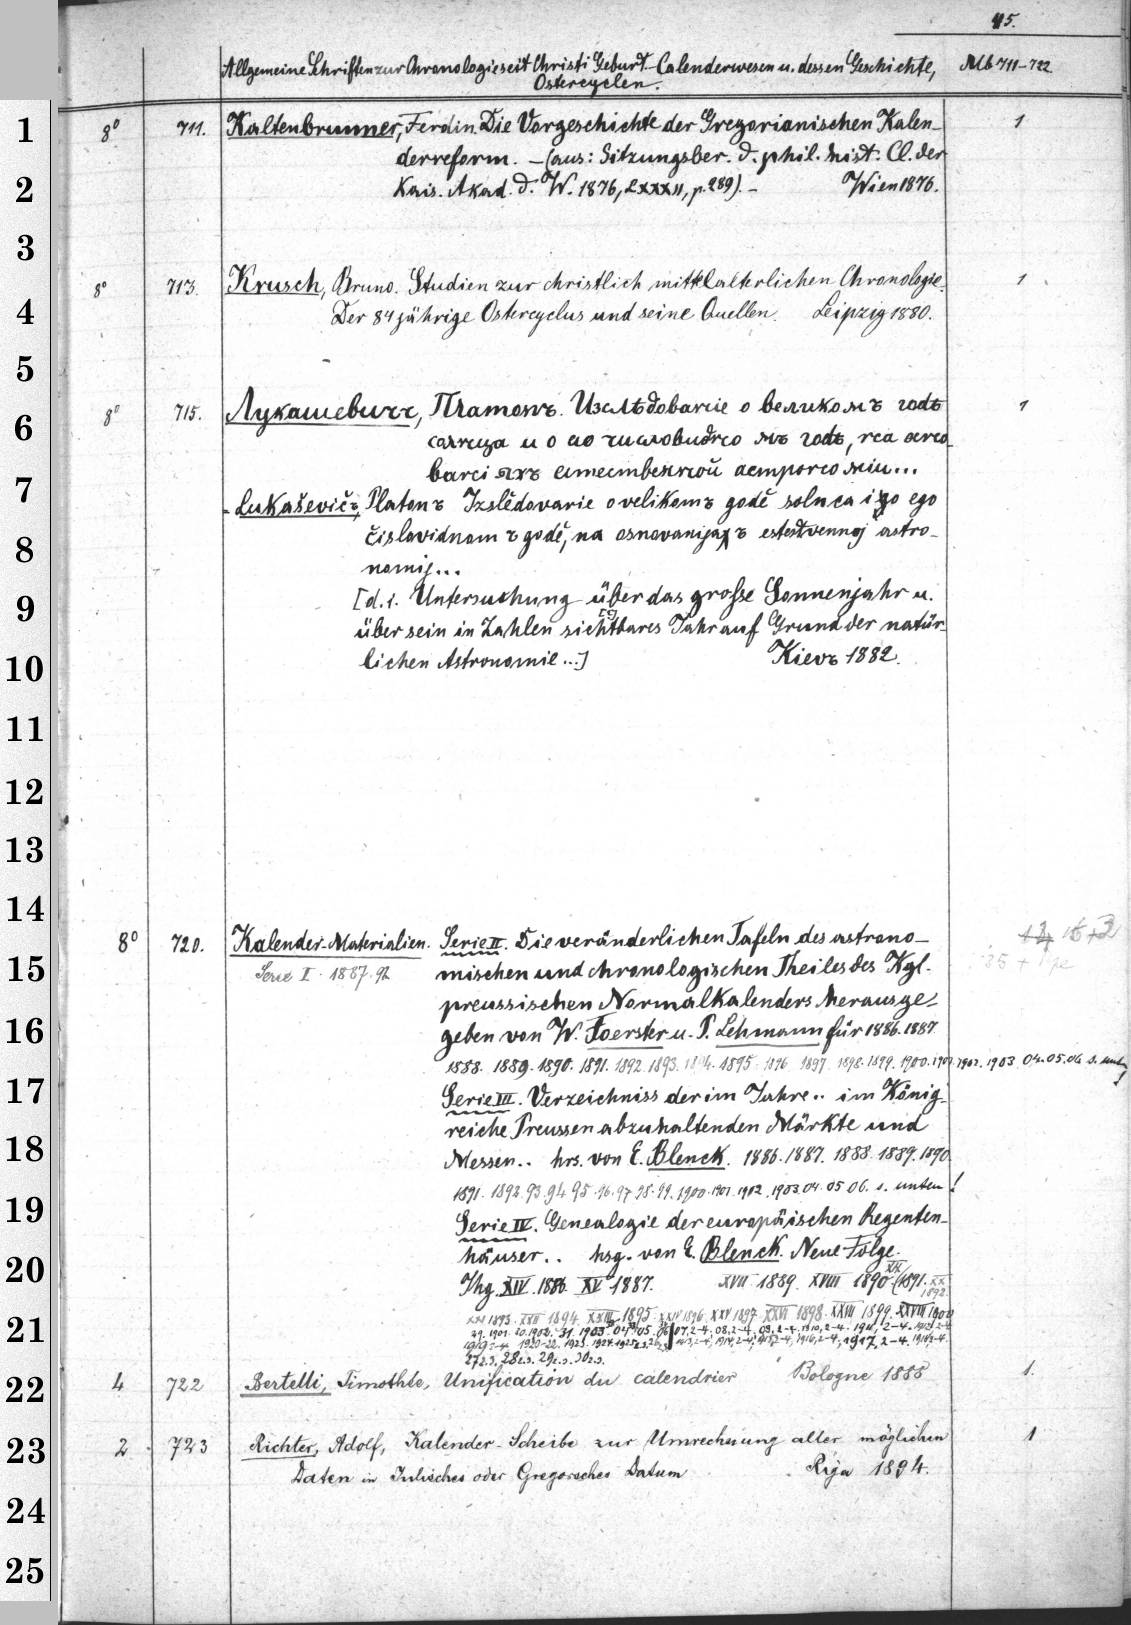 45.
Allgemeine Schriften zur Chronologie seit Christi Geburt. Calenderwesen u. dessen Geschichte, Mb 711-722
Ostercyclen.
1 8° 711. Kaltenbrunner, Ferdin. Die Vorgeschichte der Gregorianischen Kalen- 1
derreform. – (aus: Sitzungsber. d. phil. hist. Cl. der
2 Kais. Akad. d. W. 1876, LXXXII, p. 289). – Wien 1876.
3
8° 713. Krusch, Bruno. Studien zur christlich mittelalterlichen Chronologie. 1
4 Der 84jährige Ostercyclus und seine Quellen. Leipzig 1880.
5
6 8° 715. Лукашевичъ, Платонъ. Изслѣдованіе о великомъ годѣ 1
солнца и о его числовидно мъ годѣ, на осно-
7 ваніяхъ естественной астрономіи...
- Lukaševičъ, Platonъ Izslědovanie o velikomъ godě solnca i o ego
8 čislovidnomъ godě, na osnovanijaхъ estestvennoj astro-
nomij...
9 [d. i. Untersuchung über das grosse Sonnenjahr u.
über sein in Zahlen sichtbares Jahr auf Grund der natür-
10 lichen Astronomie...] Kievъ 1882.
11
12
13
14
8° 720. Kalender-Materialien. Serie II. Die veränderlichen Tafeln des astrono-
15 Serie II. 1887-92 mischen und chronologischen Theiles des Kgl.
preussischen Normalkalenders herausge-
16 geben von W. Foerster u. P. Lehmann für 1886. 1887.
1888. 1889. 1890. 1891. 1892. 1893. 1894. 1895. 1896 1897. 1898. 1899. 1900. 1901. 1902. 1903. 04. 05. 06 s. unten!
17 Serie III. Verzeichniss der im Jahre.. im König-
reiche Preussen abzuhaltenden Märkte und
18 Messen.. hrs. von E. Blenck. 1886. 1887. 1888. 1889. 1890
1891. 1892. 93. 94. 95. 96. 97. 98. 99. 1900. 1901. 1902. 1903. 04. 05. 06. s. unten!
19 Serie IV. Genealogie der europäischen Regenten-
häuser.. hsg. von E. Blenck. Neue Folge.
20 Jhg. XIV. 1886. XV 1887. XVII 1889. XVIII 1890. XIX 1891. XX 1892.
XXI 1893. XXII 1894. XXIII 1895. XXIV 1896 XXV 1897 XXVI 1898. XXVII 1899. XXVIII 1900
21 29. 1901. 30. 1902. 31. 1903.
27 2.3. 28 2.3. 29 2.3. 30 2.3.
22 4 722 Bertelli, Timothée, Unification du calendrier Bologne 1888 1.
23 2 723 Richter, Adolf, Kalender-Scheibe zur Umrechnung aller möglichen 1
Daten in Julisches oder Gregorsches Datum Riga 1894.
24
25